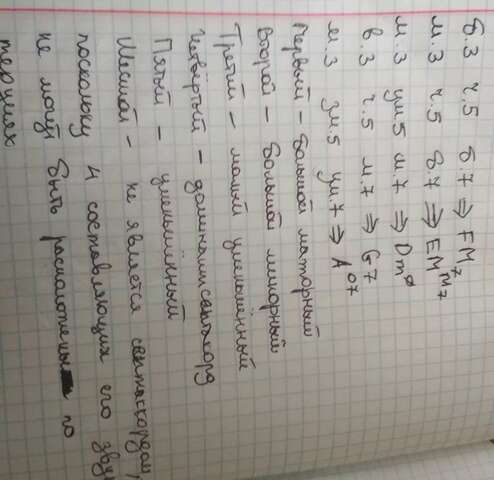 б.3 ч.5 б7 ⇒ FM7
м.3 ч.5 б.7 ⇒ EMM7
м.3 ум5 м.7 ⇒ Dmø
в.3 ч.5 м.7 ⇒ G7
м.3 ум.5 ум.7 ⇒ A07
Первый – большой маторный
Второй – большой минорный
Третий – малый уменьшённый
Четвёртый – доминантсептакорд
Пятый – уменьшённый
Шестой – не является септаккордом,
поскольку 4 составляющих его зву
не могут быть расположены по
терциях